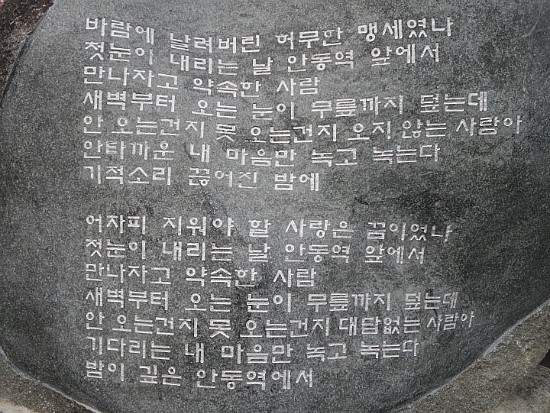 바람에 날려버린 허무한 맹세였나
첫눈이 내리는 날 안동역 앞에서
만나자고 약속한 사람
새벽부터 오는 눈이 무릎까지 덮는데
안 오는건지 못 오는건지 오지 않는 사람아
안타까운 내 마음만 녹고 녹는다
기적소리 끊어진 밤에
어차피 지워야 할 사랑은 꿈이였나
첫눈이 내리는 날 안동역 앞에서
만나자고 약속한 사람
새벽부터 오는 눈이 무릎까지 덮는데
안 오는건지 못 오는건지 대답없는 사람아
기다리는 내 마음만 녹고 녹는다
밤이 깊은 안동역에서